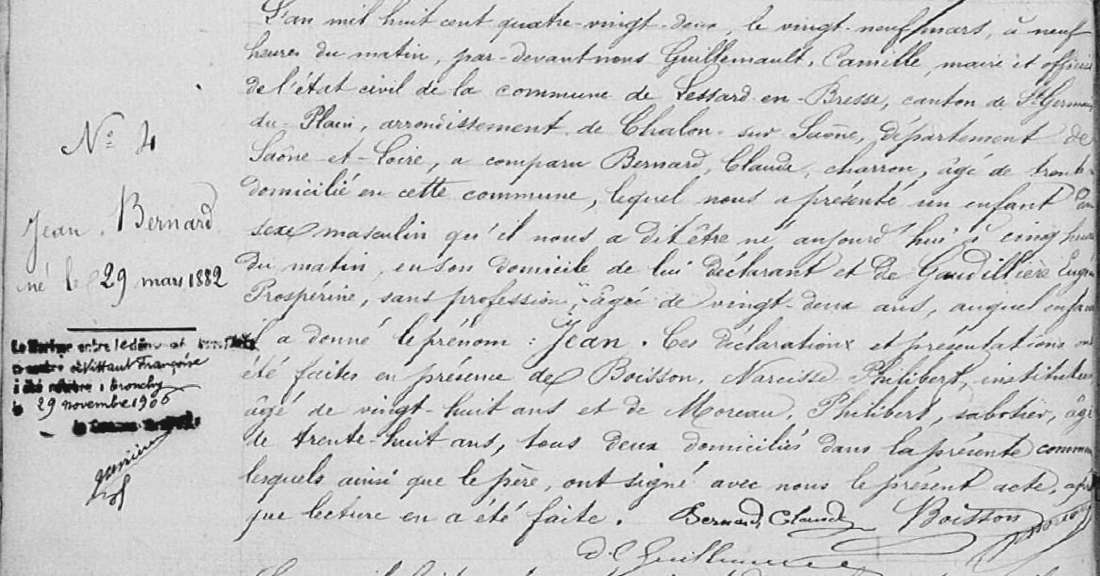 N° 4
Jean Bernard
né le 29 mars 1882
entre le dénommé
et Vittaut Françoise
a été célébré à Tronchy
le 29 novembre 1906
L'an mil huit cent quatre-vingt-deux, le vingt-neuf mars, à neuf
heures du matin, par-devant nous Guillemault, Camille, maire et officier
de l'état civil de la commune de Lessard-en-Bresse, canton de St Germain
du-Plain, arrondissement de Chalon-sur-Saône, département de
Saône-et-Loire, a comparu Bernard, Claude, charron, âgé de trente
domicilié en cette commune, lequel nous a présenté un enfant du
sexe masculin qu'il nous a dit être né aujourd'hui à cinq heures
du matin, en son domicile de lui déclarant et de Gaudillière Eugén
Prospérine, sans profession, âgée de vingt-deux ans, auquel enfant
il a donné le prénom : Jean. Ces déclarations et présentations ont
été faites en présence de Boisson, Narcisse Philibert, instituteur
âgé de vingt-huit ans et de Moreau, Philibert, sabotier, âgé
de trente-huit ans, tous deux domiciliés dans la présente commune
lesquels ainsi que le père, ont signé avec nous le présent acte, après
que lecture en a été faite. Bernard Claude Boisson